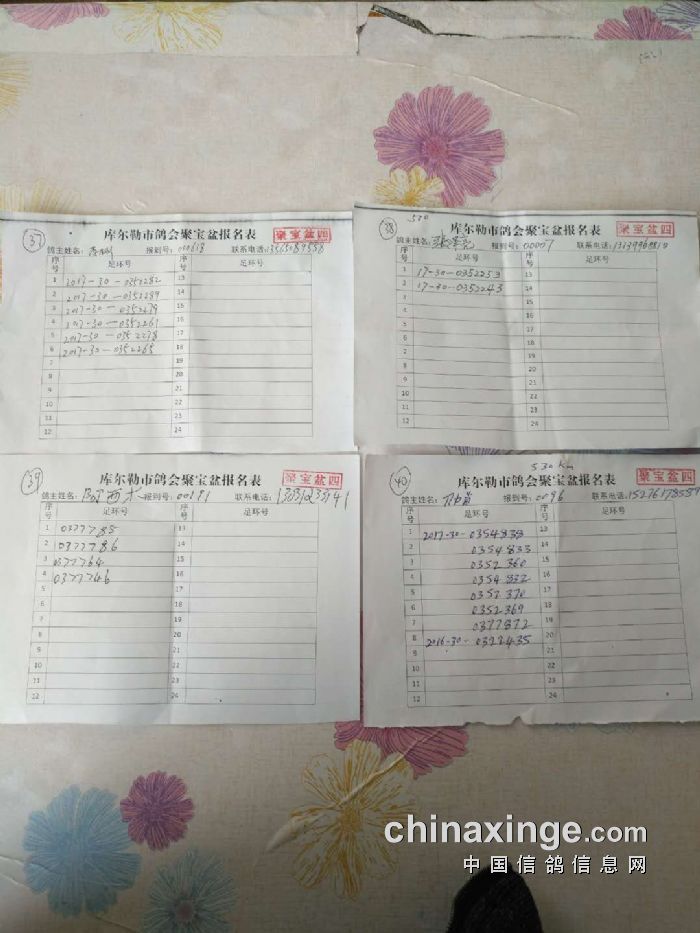 37
库尔勒市鸽会聚宝盆报名表
聚宝盆四
鸽主姓名: 报到号: 000618 联系电话:
序号 足环号 序号 足环号
1 2017-30-0352282 13
2 2017-30-0352289 14
3 2017-30-0352279 15
4 2017-30-0352261 16
5 2017-30-0352278 17
6 2017-30-0352265 18
7 19
8 20
9 21
10 22
11 23
12 24
38
530
库尔勒市鸽会聚宝盆报名表
聚宝盆四
鸽主姓名: 报到号: 00007 联系电话:
序号 足环号 序号 足环号
1 17-30-0352253 13
2 17-30-0352243 14
3 15
4 16
5 17
6 18
7 19
8 20
9 21
10 22
11 23
12 24
39
库尔勒市鸽会聚宝盆报名表
聚宝盆四
鸽主姓名: 阿西木 报到号: 00181 联系电话:
序号 足环号 序号 足环号
1 0377785 13
2 0377786 14
3 0377764 15
4 0377746 16
5 17
6 18
7 19
8 20
9 21
10 22
11 23
12 24
40
530Km
库尔勒市鸽会聚宝盆报名表
聚宝盆四
鸽主姓名: 报到号: 0096 联系电话: 15276178559
序号 足环号 序号 足环号
1 2017-30-0354838 13
2 0354833 14
3 0352360 15
4 0354832 16
5 0352370 17
6 0352369 18
7 0377872 19
8 2016-30-0322435 20
9 21
10 22
11 23
12 24
chinaxinge.com
中国信鸽信息网